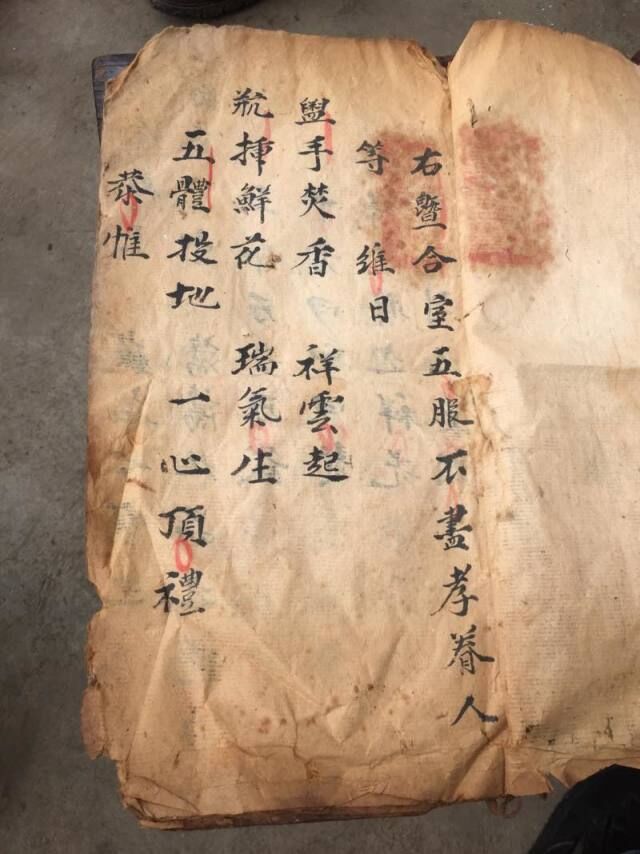 右暨合室五服不盡孝眷人
等 維日
盥手焚香 祥雲起
瓶揷鮮花 瑞氣生
五體投地 一心頂禮
恭惟